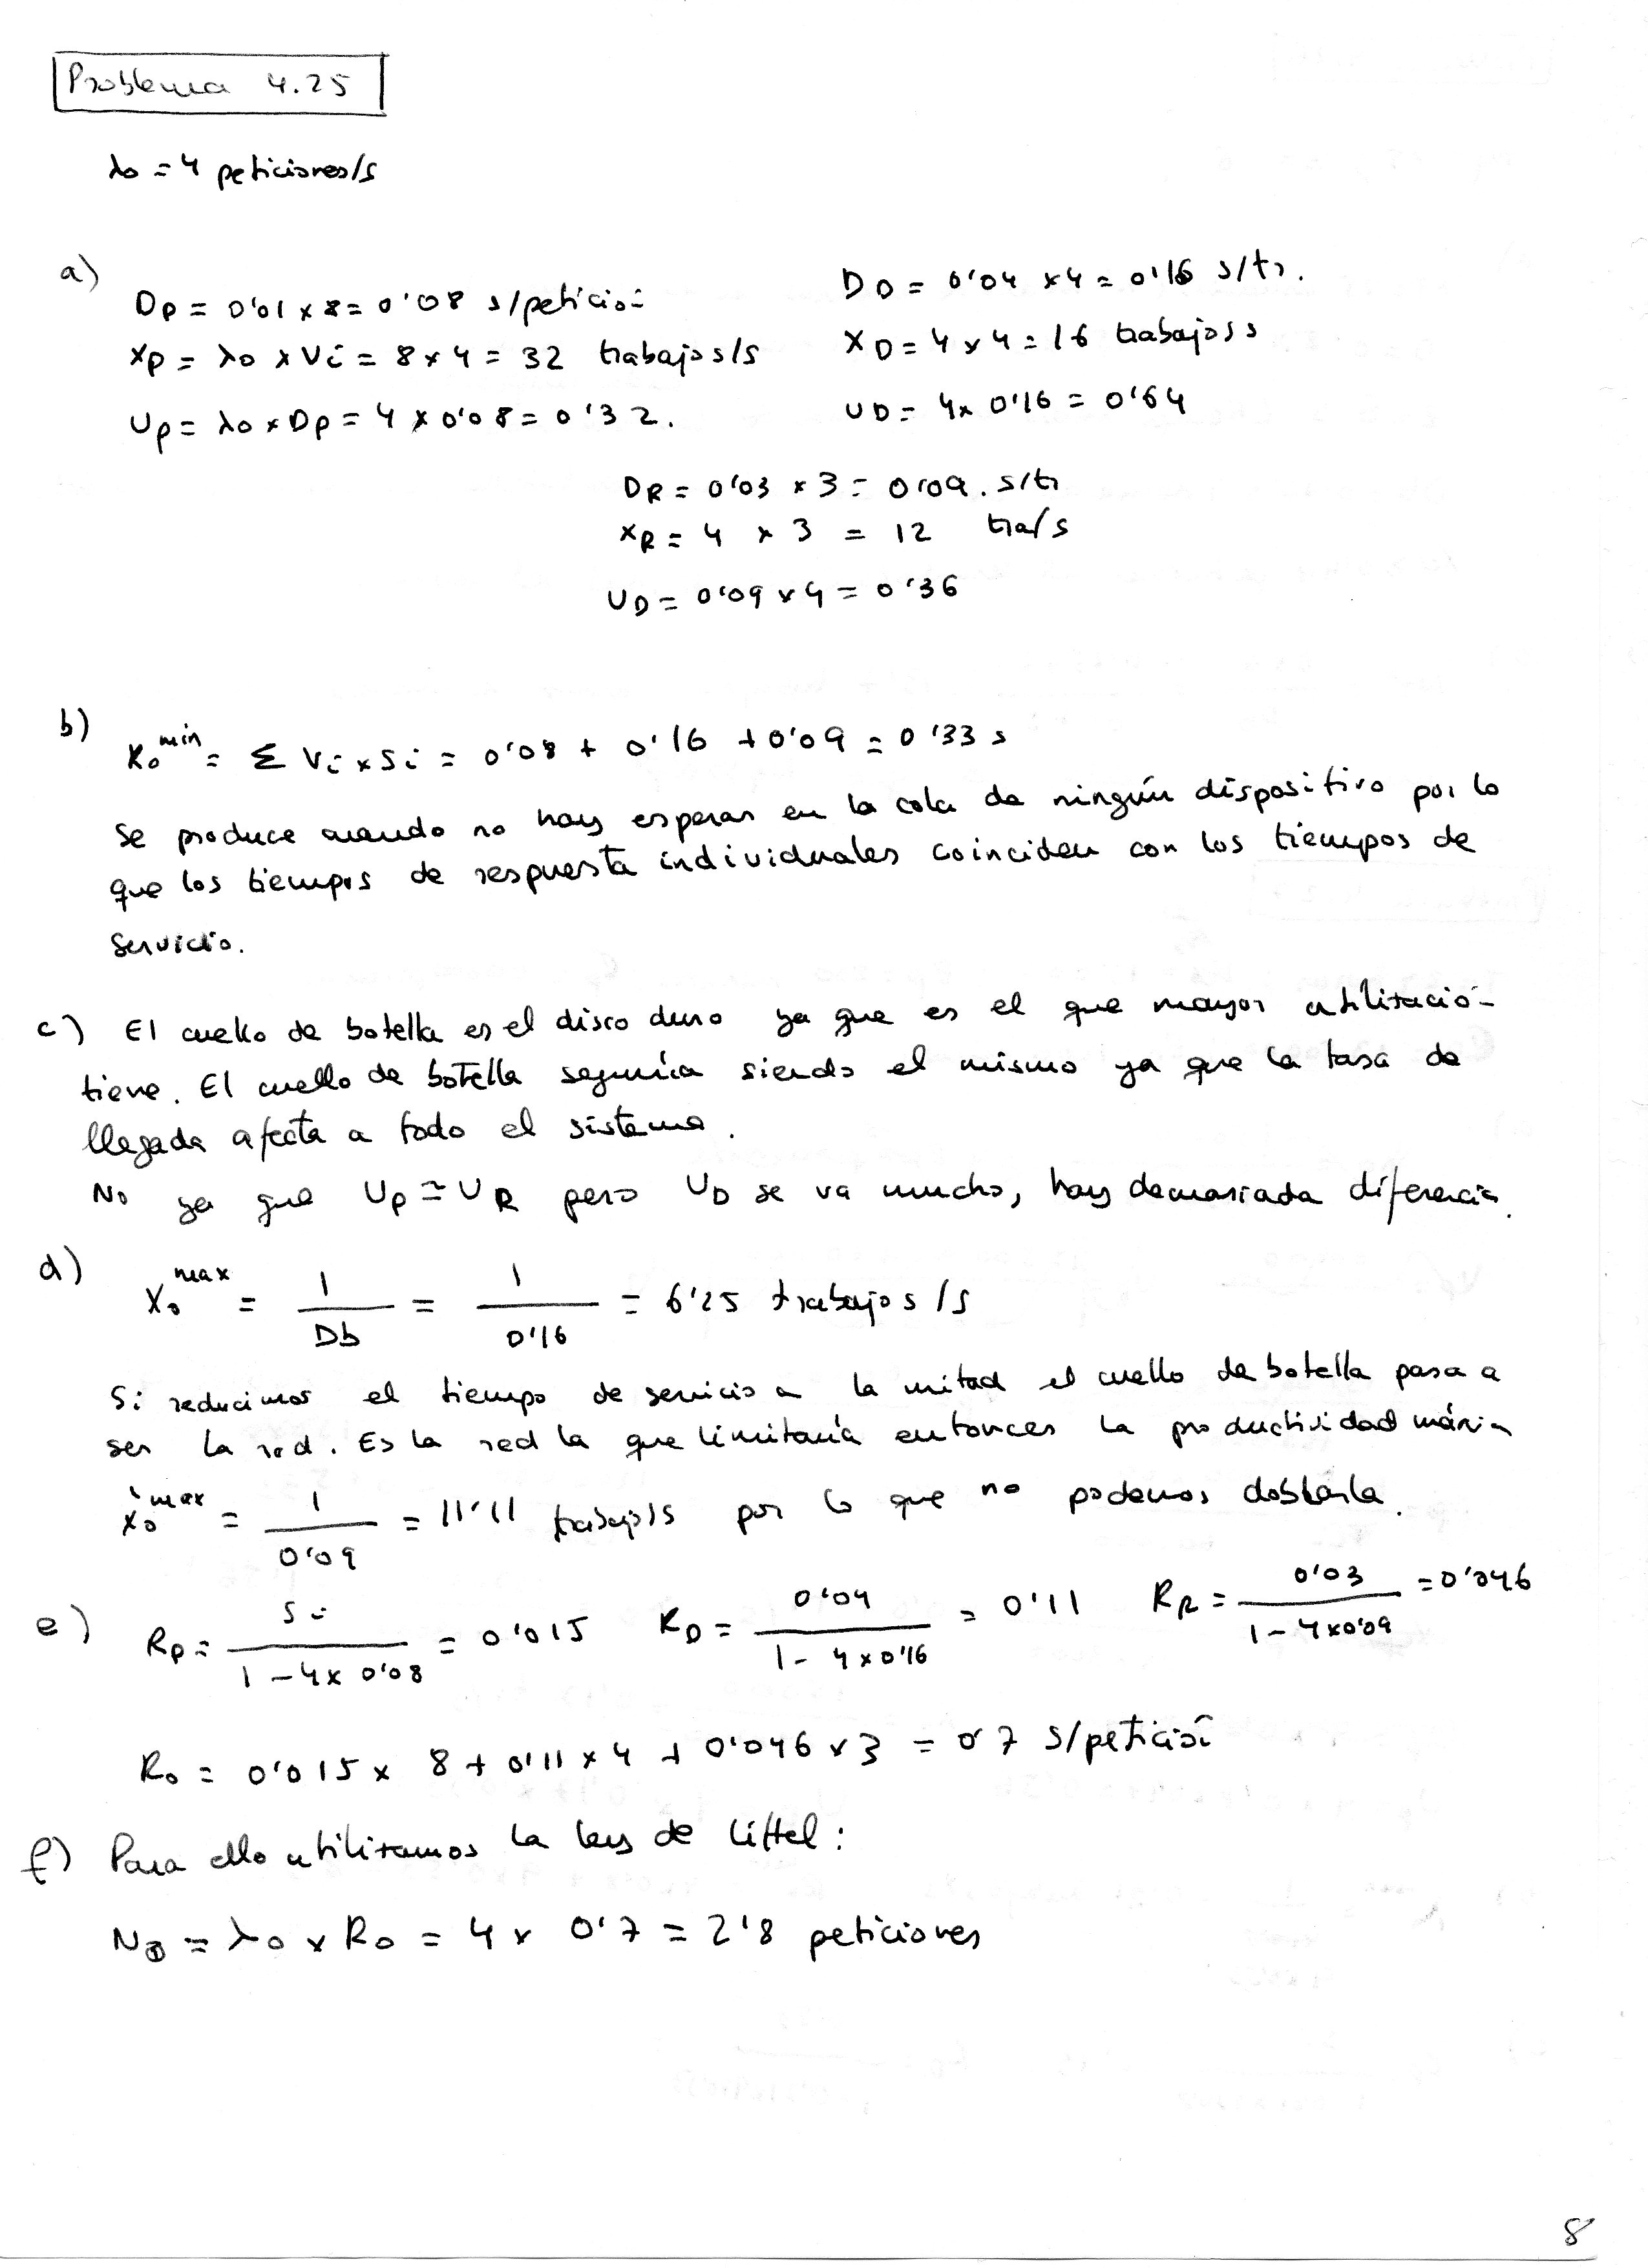 Problema 4.25
λo = 4 peticiones/s
a)
Dp = 0'01 x 8 = 0'08 s/petición
Xp = λo x Vi = 8 x 4 = 32 trabajos/s
Up = λo x Dp = 4 x 0'08 = 0'32.
DD = 0'04 x 4 = 0'16 s/tr.
XD = 4 x 4 = 16 trabajos s
UD = 4x 0'16 = 0'64
DR = 0'03 x 3 = 0'09. s/tr
XR = 4 x 3 = 12 tra/s
UD = 0'09 x 4 = 0'36
b)
Ro^min = Σ Vi x Si = 0'08 + 0'16 + 0'09 = 0'33 s
Se produce cuando no hay esperas en la cola de ningún dispositivo por lo
que los tiempos de respuesta individuales coinciden con los tiempos de
servicio.
c) El cuello de botella es el disco duro ya que es el que mayor utilización
tiene. El cuello de botella seguiría siendo el mismo ya que la tasa de
llegada afecta a todo el sistema.
No ya que Up ≃ UR pero UD se va mucho, hay demasiada diferencia.
d)
Xo^max = 1 / Db = 1 / 0'16 = 6'25 trabajos /s
Si reducimos el tiempo de servicio a la mitad el cuello de botella pasa a
ser la red. Es la red la que limitaría entonces la productividad máxima
Xo'^max = 1 / 0'09 = 11'11 trabajo/s por lo que no podemos doblarla.
e) Rp = Si / (1 - 4 x 0'08) = 0'015 RD = 0'04 / (1 - 4 x 0'16) = 0'11 RR = 0'03 / (1 - 4x0'09) = 0'046
Ro = 0'015 x 8 + 0'11 x 4 + 0'046 x 3 = 0'7 s/petición
f) Para ello utilizamos la ley de Littel:
No = λo x Ro = 4 x 0'7 = 2'8 peticiones
8